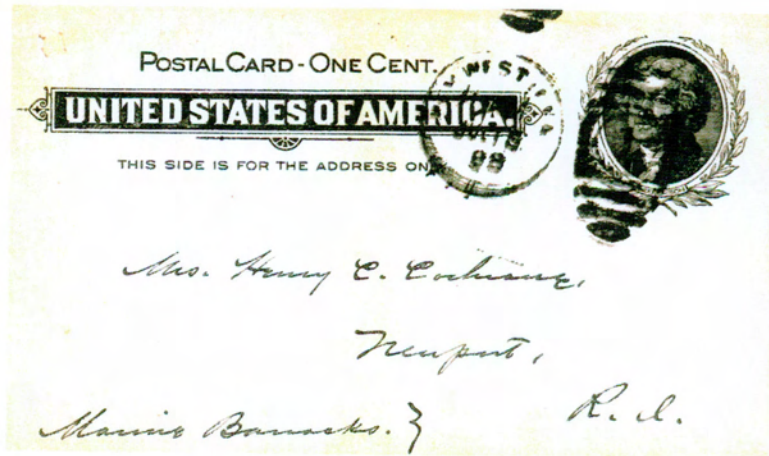 POSTAL CARD - ONE CENT.
UNITED STATES OF AMERICA.
THIS SIDE IS FOR THE ADDRESS ONLY
WEST
98
Mrs. Henry C. Cochrane,
Newport,
R. I.
Marine Barracks. }